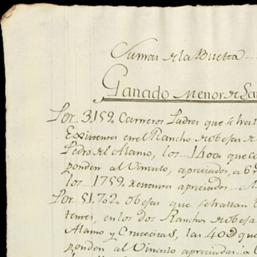 Sumas de la Buelta
Ganado Menor de La
Por 3,159 Carneros Padres que se hallan
Existentes en el Rancho de obejas de
Pedro del Alamo, los 1400 que
ponden al Vinculo, apreciados a 6
los 1759 apreciados
Por 51,702 Obejas que se hallan
tentes, en los dos Ranchos de obejas
Alamo y Crucecitas, las 40
ponden al Vinculo apreciadas a